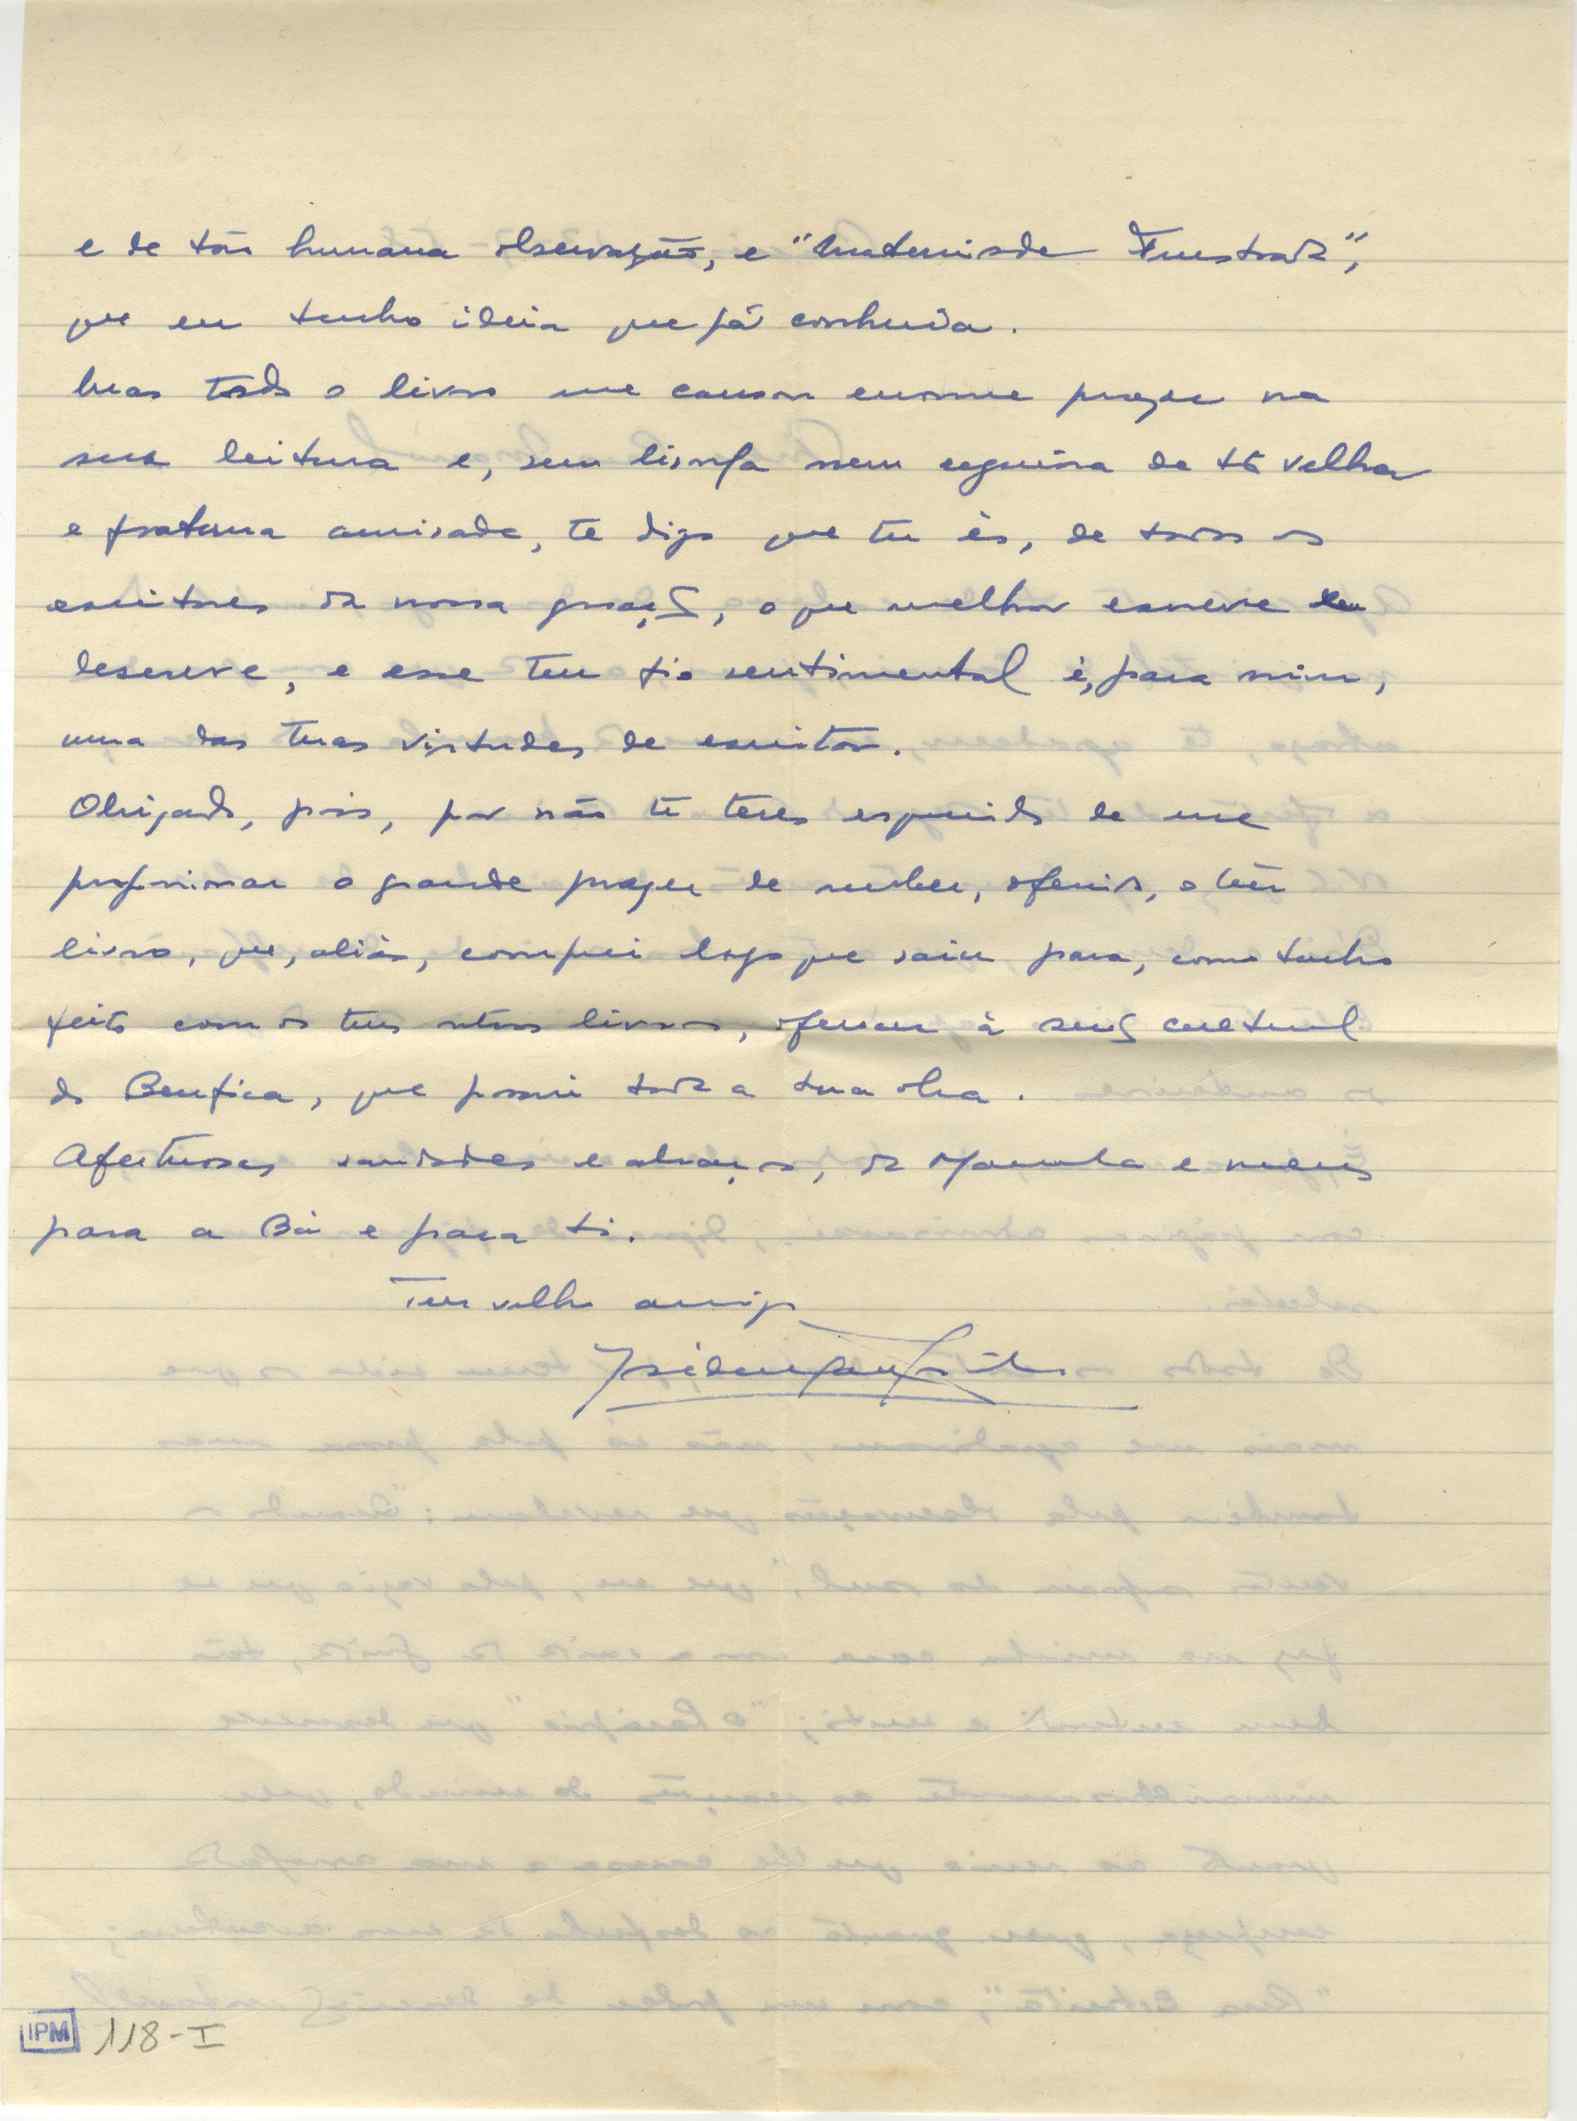 e de tão humana observação, e "Maternidade Frustrada",
que eu tenho ideia que já conhecia.
Mas todo o livro me causou enorme prazer na
sua leitura e, sem lisonja nem cegueira de tão velha
e fraterna amizade, te digo que tu és, de todos os
escritores da nossa geração, o que melhor escreve
descreve, e esse teu fio sentimental é, para mim,
uma das tuas virtudes de escritor.
Obrigado, pois, por não te teres esquecido de me
proporcionar o grande prazer de receber, oferecido, o teu
livro, que, aliás, comprei logo que saiu para, como tenho
feito com os teus outros livros, oferecer à secção cultural
do Benfica, que possui toda a tua obra.
Afectuosas saudades e abraços, da Manuela e meus
para a Bá e para ti.
Teu velho amigo
IPM 118-I